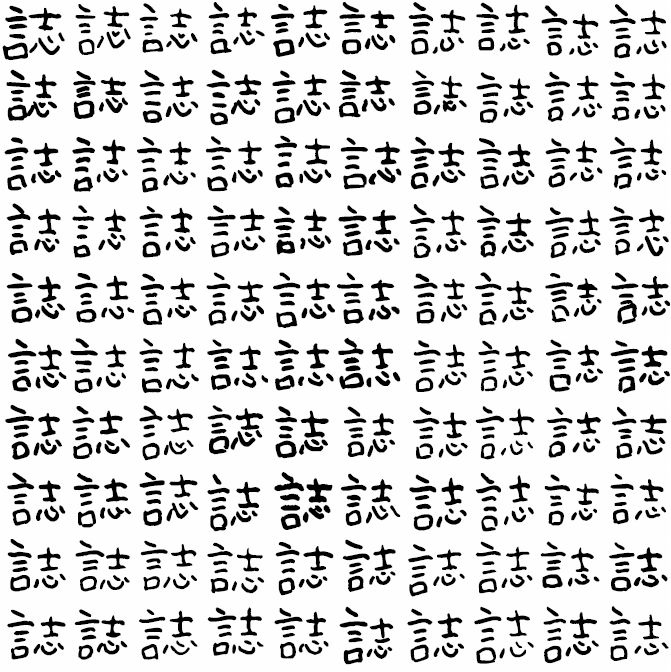 誌誌誌誌誌誌誌誌誌誌
誌誌誌誌誌誌誌誌誌誌
誌誌誌誌誌誌誌誌誌誌
誌誌誌誌誌誌誌誌誌誌
誌誌誌誌誌誌誌誌誌誌
誌誌誌誌誌誌誌誌誌誌
誌誌誌誌誌誌誌誌誌誌
誌誌誌誌誌誌誌誌誌誌
誌誌誌誌誌誌誌誌誌誌
誌誌誌誌誌誌誌誌誌誌